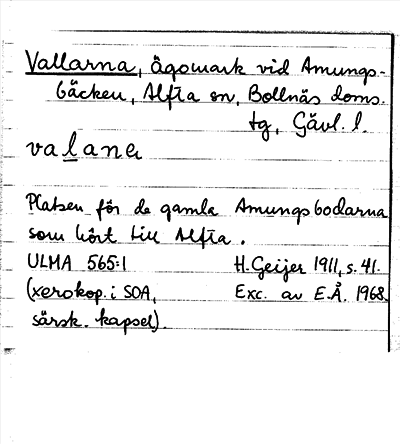 Vallarna, ägomark vid Amungs-
bäcken, Alfta sn, Bollnäs doms.
tg, Gävl. l.
valane
Platsen för de gamla Amungsbodarna
som hört till Alfta.
ULMA 565:1 H. Geijer 1911, s. 41.
(xerokop. i SOA, Exc. av E.Å. 1968.
särsk. kapsel).